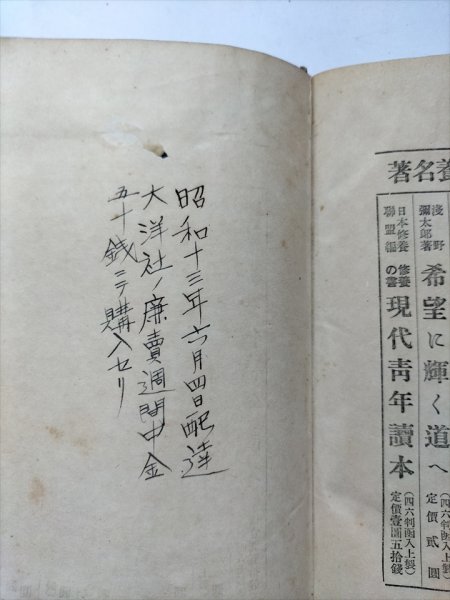 昭和十三年六月四日配達
大洋社ノ廉賣週間中金
五十銭ニテ購入セリ
養名著
淺野彌太郎著 希望に輝く道へ (四六判函入上製) 定價貳圓
日本修養聯盟編 修養の書 現代靑年讀本 (四六判函入上製) 定價壹圓五拾錢